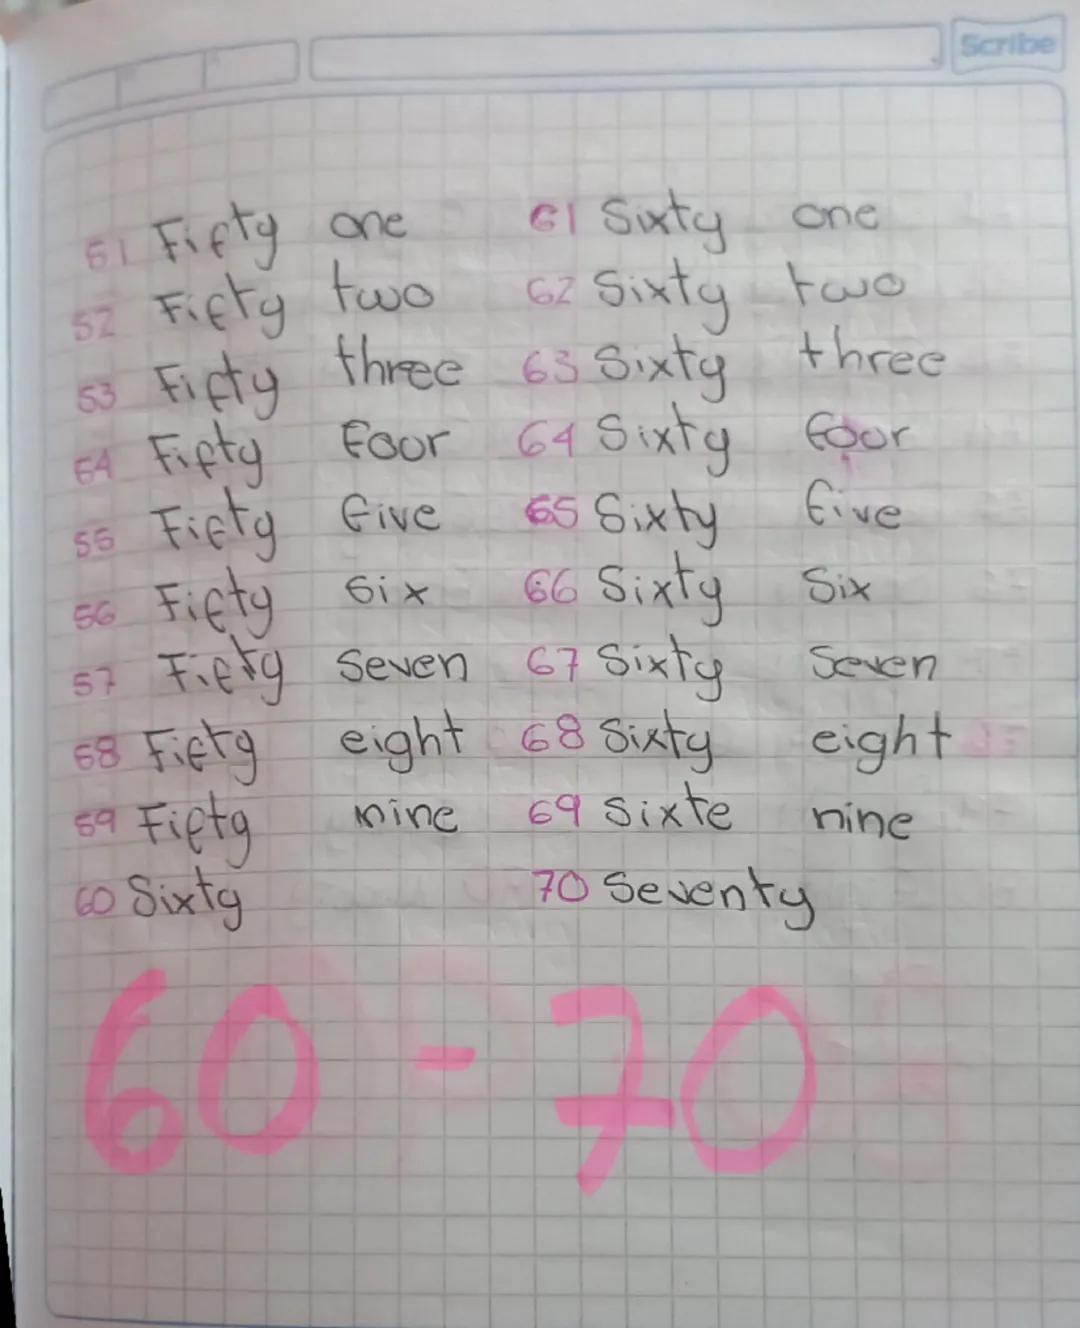 Scribe
51 Fifty one
52 Fifty two
53 Fifty three
54 Fifty foor
55 Fifty five
56 Fifty six
57 Fifty seven
58 Fifty eight
59 Fifty nine
60 Sixty
61 Sixty one
62 Sixty two
63 Sixty three
64 Sixty foor
65 Sixty five
66 Sixty Six
67 Sixty Seven
68 Sixty eight
69 Sixte nine
70 Seventy
60 - 70